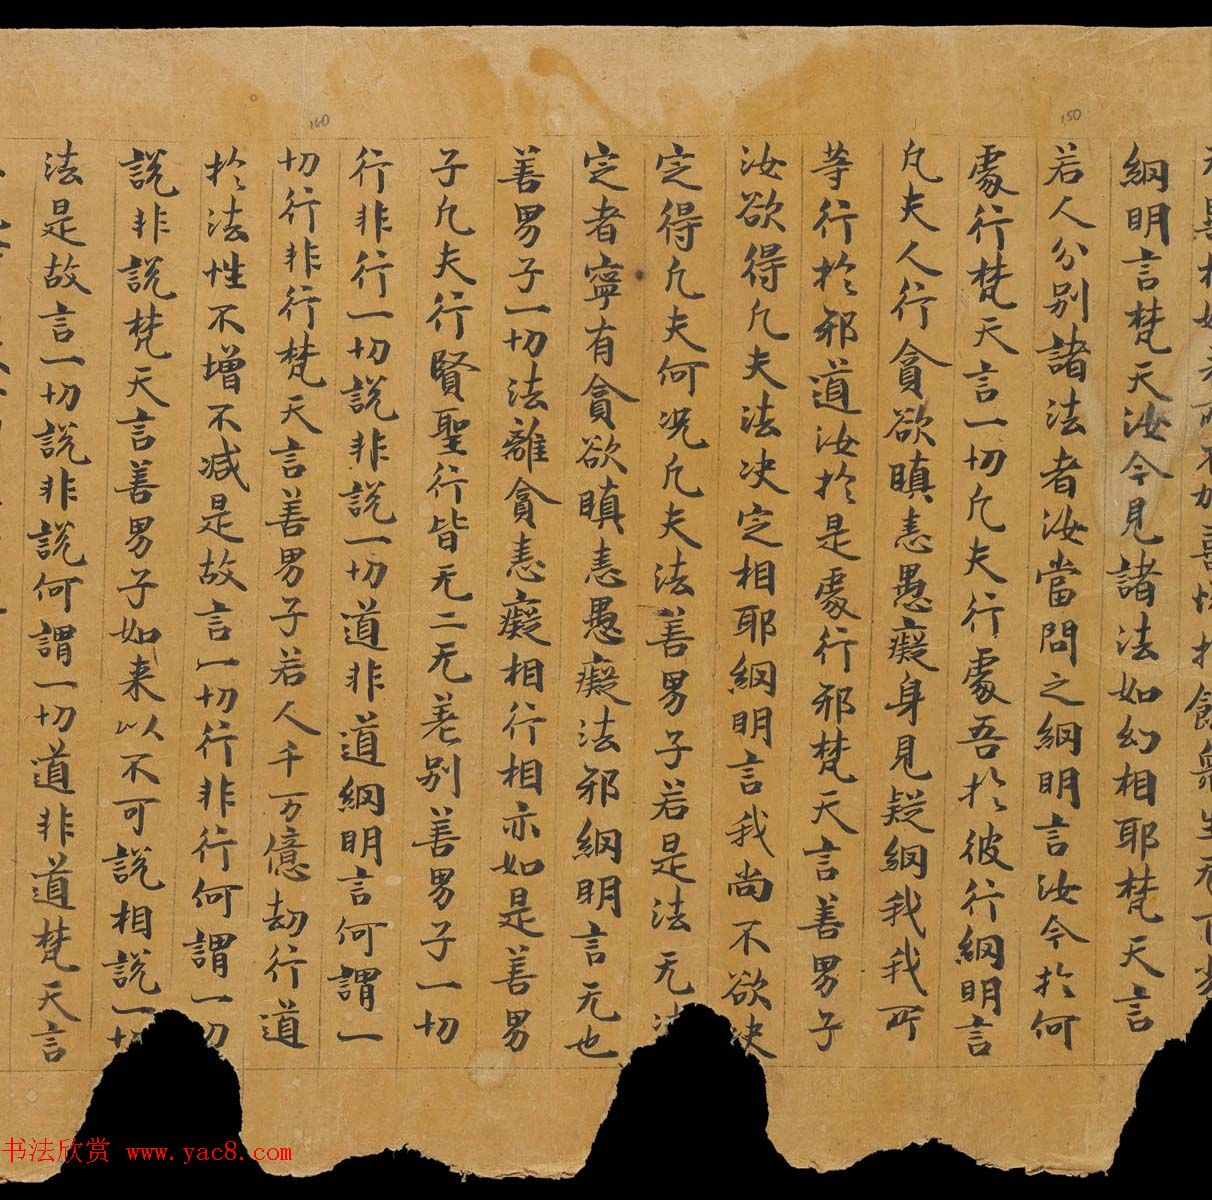 150
160
綱明言梵天汝今見諸法如幻相耶梵天言
若人分別諸法者汝當問之綱明言汝今於何
處行梵天言一切凡夫行處吾於彼行綱明言
凡夫人行貪欲瞋恚愚癡身見疑網我我所
等行於邪道汝於是處行邪梵天言善男子
汝欲得凡夫法决定相耶綱明言我尚不欲决
定得凡夫何況凡夫法善男子若是法无决
定者寧有貪欲瞋恚愚癡法邪綱明言无也
善男子一切法離貪恚癡相行相亦如是善男
子凡夫行賢聖行皆无二无差別善男子一切
行非行一切說非說一切道非道綱明言何謂一
切行非行梵天言善男子若人千万億劫行道
於法性不增不减是故言一切行非行何謂一切
說非說梵天言善男子如来以不可說相說一切
法是故言一切說非說何謂一切道非道梵天言
书法欣赏 www.yac8.com